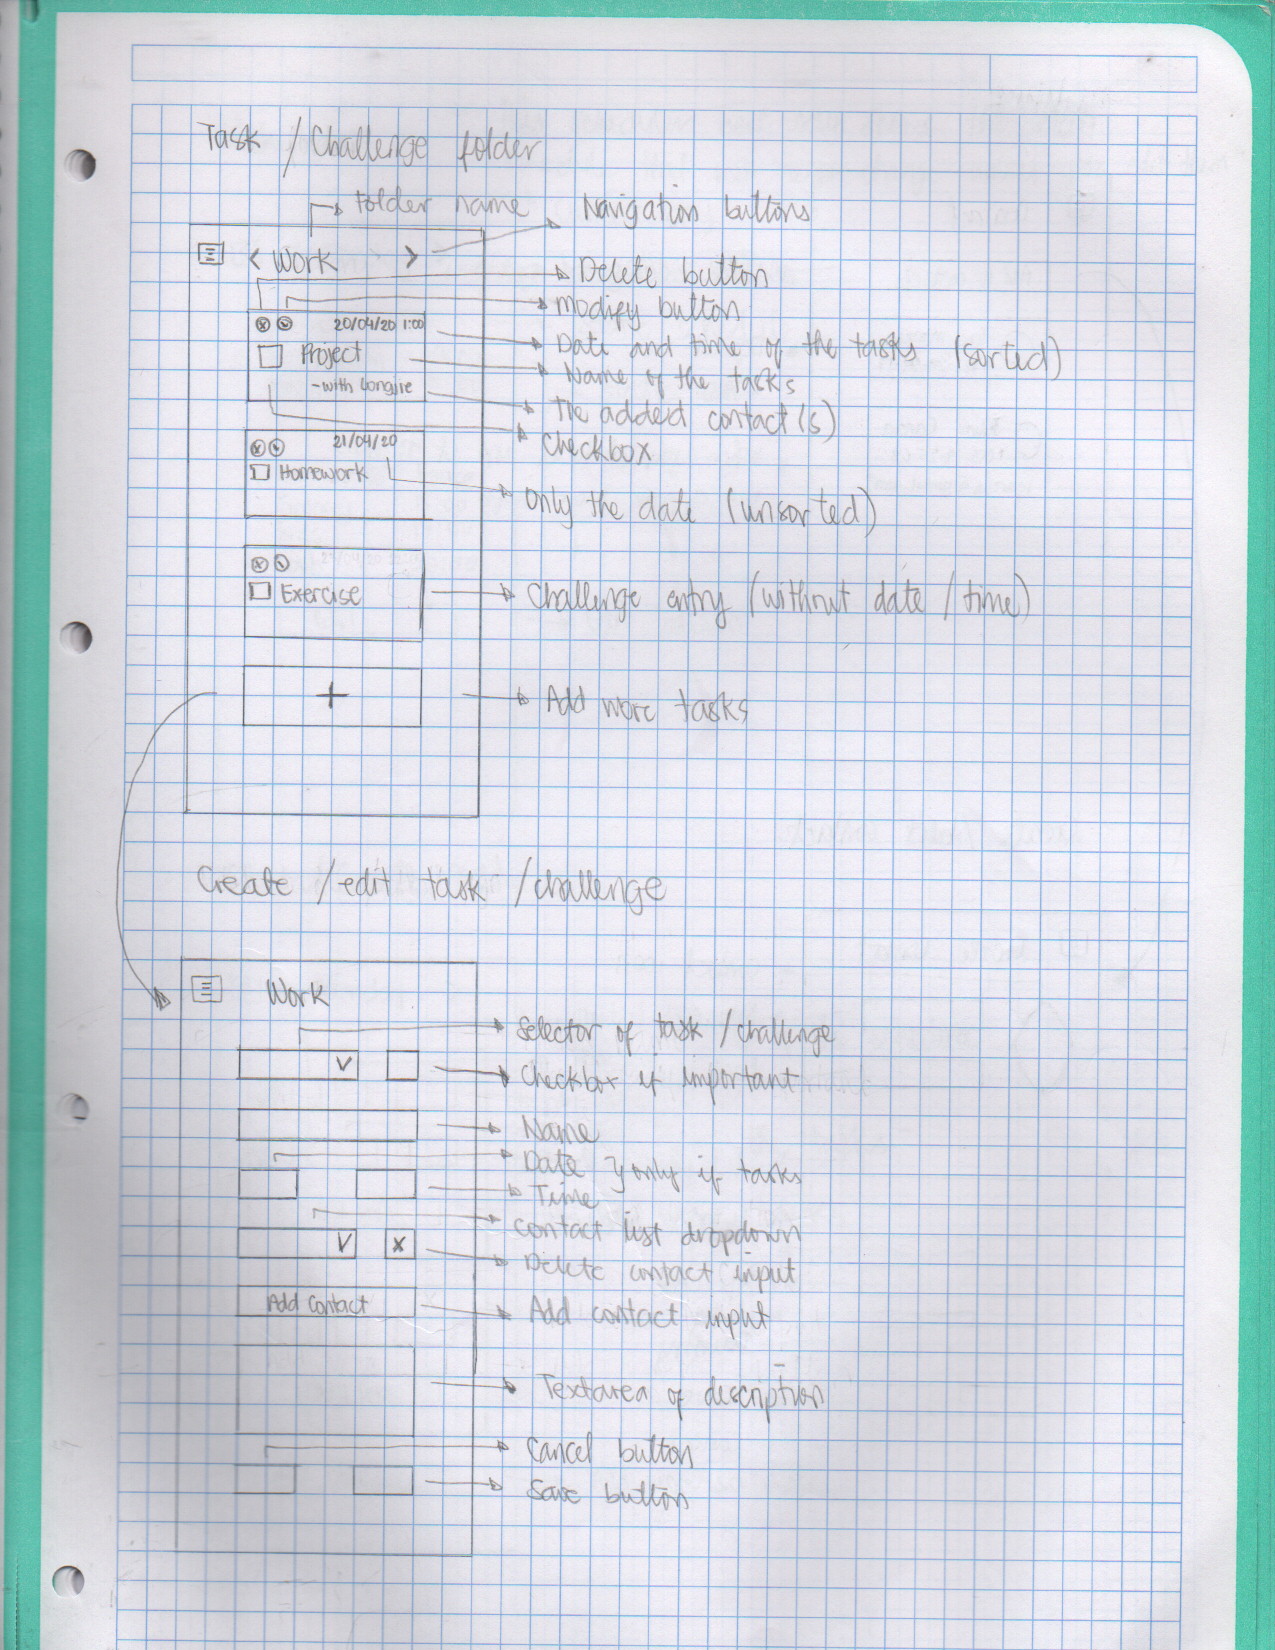 Task / Challenge folder
Folder name
Navigation buttons
< Work >
Delete button
Modify button
20/04/20 1:00
Date and time of the tasks (sorted)
Project
Name of the tasks
-with Longjie
The added contact(s)
Checkbox
21/04/20
Homework
Only the date (unsorted)
Exercise
Challenge entry (without date / time)
+
Add more tasks
Create / edit task / challenge
Work
Selector of task / challenge
V
Checkbox if important
Name
Date } only if tasks
Time
Contact list dropdown
V X
Delete contact input
Add Contact
Add contact input
Textarea of description
Cancel button
Save button